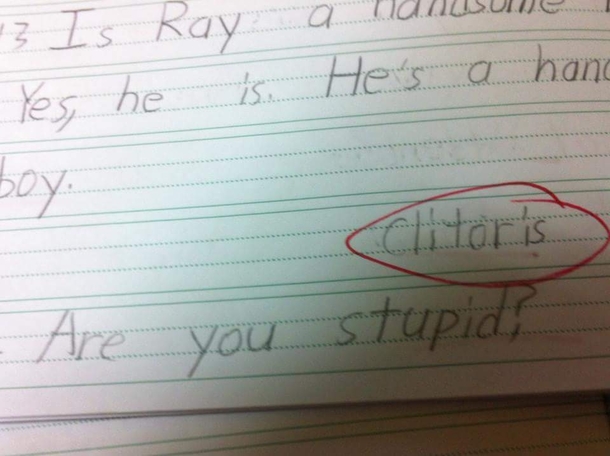 13 Is Ray a handsome
Yes, he is. He's a
boy.
Clitoris
Are you stupid?